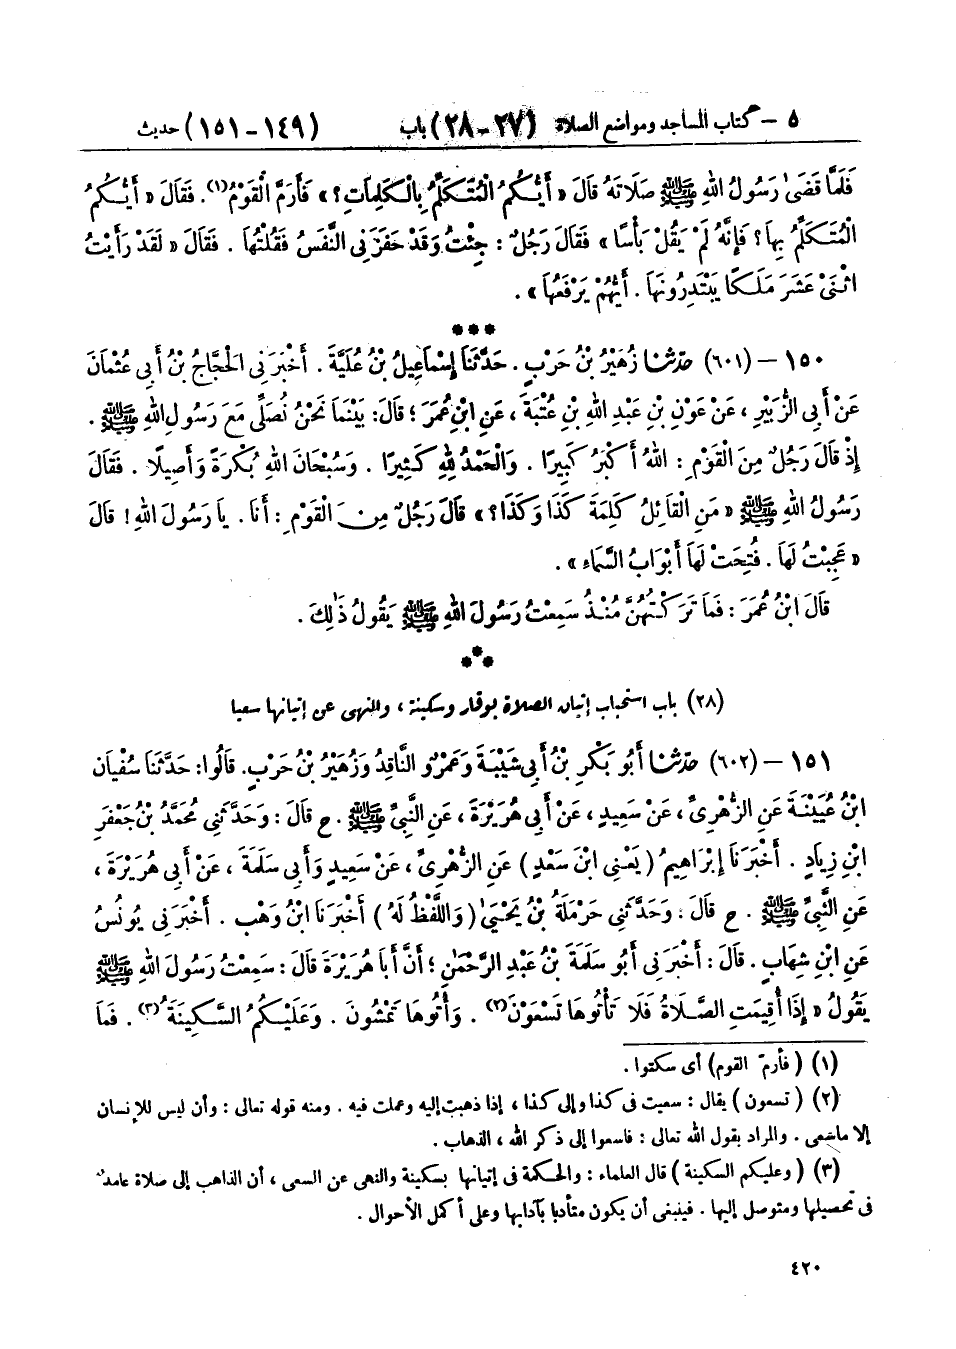 ٥ - كتاب المساجد ومواضع الصلاة (٢٧-٢٨) باب (١٤٩-١٥١) حديث
فَلَمَّا قَضَىٰ رَسُولُ اللهِ ﷺ صَلَاتَهُ قَالَ « أَيُّكُمُ الْمُتَكَلِّمُ بِالْكَلِمَاتِ؟ » فَأَرَمَّ الْقَوْمُ(١). فَقَالَ « أَيُّكُمُ
الْمُتَكَلِّمُ بِهَا؟ فَإِنَّهُ لَمْ يَقُلْ بَأْسًا » فَقَالَ رَجُلٌ : جِئْتُ وَقَدْ حَفَزَنِى النَّفَسُ فَقُلْتُهَا . فَقَالَ « لَقَدْ رَأَيْتُ
اثْنَىْ عَشَرَ مَلَكًا يَبْتَدِرُونَهَا . أَيُّهُمْ يَرْفَعُهَا » .
***
١٥٠ - (٦٠١) حَدَّثَنَا زُهَيْرُ بْنُ حَرْبٍ . حَدَّثَنَا إِسْمَاعِيلُ بْنُ عُلَيَّةَ . أَخْبَرَنِى الْحَجَّاجُ بْنُ أَبِى عُثْمَانَ
عَنْ أَبِى الزُّبَيْرِ ، عَنْ عَوْنِ بْنِ عَبْدِ اللهِ بْنِ عُتْبَةَ ، عَنِ ابْنِ عُمَرَ ؛ قَالَ: بَيْنَمَا نَحْنُ نُصَلِّى مَعَ رَسُولِ اللهِ ﷺ .
إِذْ قَالَ رَجُلٌ مِنَ الْقَوْمِ : اللهُ أَكْبَرُ كَبِيرًا . وَالْحَمْدُ لِلهِ كَثِيرًا . وَسُبْحَانَ اللهِ بُكْرَةً وَأَصِيلًا . فَقَالَ
رَسُولُ اللهِ ﷺ « مَنِ الْقَائِلُ كَلِمَةَ كَذَا وَكَذَا؟ » قَالَ رَجُلٌ مِنَ الْقَوْمِ : أَنَا. يَا رَسُولَ اللهِ! قَالَ
« عَجِبْتُ لَهَا . فُتِحَتْ لَهَا أَبْوَابُ السَّمَاءِ » .
قَالَ ابْنُ عُمَرَ : فَمَا تَرَكْتُهُنَّ مُنْذُ سَمِعْتُ رَسُولَ اللهِ ﷺ يَقُولُ ذٰلِكَ .
***
(٢٨) باب استحباب إتيان الصلاة بوقار وسكينة ، والنهى عن إتيانها سعيا
١٥١ - (٦٠٢) حَدَّثَنَا أَبُو بَكْرِ بْنُ أَبِى شَيْبَةَ وَعَمْرٌو النَّاقِدُ وَزُهَيْرُ بْنُ حَرْبٍ. قَالُوا: حَدَّثَنَا سُفْيَانُ
ابْنُ عُيَيْنَةَ عَنِ الزُّهْرِىِّ ، عَنْ سَعِيدٍ ، عَنْ أَبِى هُرَيْرَةَ ، عَنِ النَّبِىِّ ﷺ . ح قَالَ : وَحَدَّثَنِى مُحَمَّدُ بْنُ جَعْفَرِ
ابْنِ زِيَادٍ . أَخْبَرَنَا إِبْرَاهِيمُ ( يَعْنِى ابْنَ سَعْدٍ ) عَنِ الزُّهْرِىِّ ، عَنْ سَعِيدٍ وَأَبِى سَلَمَةَ ، عَنْ أَبِى هُرَيْرَةَ ،
عَنِ النَّبِىِّ ﷺ . ح قَالَ : وَحَدَّثَنِى حَرْمَلَةُ بْنُ يَحْيَىٰ ( وَاللَّفْظُ لَهُ ) أَخْبَرَنَا ابْنُ وَهْبٍ . أَخْبَرَنِى يُونُسُ
عَنِ ابْنِ شِهَابٍ . قَالَ : أَخْبَرَنِى أَبُو سَلَمَةَ بْنُ عَبْدِ الرَّحْمٰنِ ؛ أَنَّ أَبَا هُرَيْرَةَ قَالَ : سَمِعْتُ رَسُولَ اللهِ ﷺ
يَقُولُ « إِذَا أُقِيمَتِ الصَّلَاةُ فَلَا تَأْتُوهَا تَسْعَوْنَ(٢) . وَأْتُوهَا تَمْشُونَ . وَعَلَيْكُمُ السَّكِينَةَ(٣) . فَمَا
(١) ( فأرمّ القوم) أى سكتوا .
(٢) ( تسعون ) يقال : سعيت فى كذا وإلى كذا ، إذا ذهبت إليه وعملت فيه . ومنه قوله تعالى : وأن ليس للإنسان
إلا ما سعى . والمراد بقول الله تعالى : فاسعوا إلى ذكر الله ، الذهاب .
(٣) ( وعليكم السكينة ) قال العلماء : والحكمة فى إتيانها بسكينة والنهى عن السعى ، أن الذاهب إلى صلاة عامد
فى تحصيلها ومتوصل إليها . فينبغى أن يكون متأدبا بآدابها وعلى أكمل الأحوال .
٤٢٠